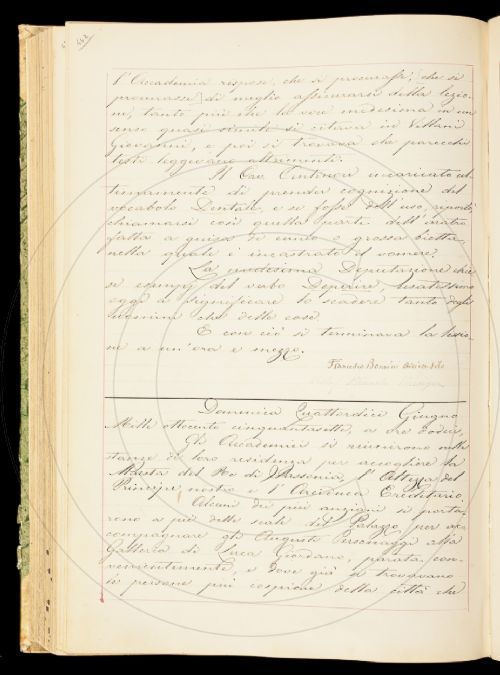 442
l'Accademia rispose, che si procurasse, [che si
procurasse] di meglio assicurarsi della lezio-
ne, tanto più che la voce medesima in un
senso quasi simile si citava in Villani
Giovanni, e poi si trovava che parecchi
testi leggevano altrimenti.
Il Cav. incaricato ul-
timamente di prender cognizione del
vocabolo Dentale, e se fosse dell'uso, riportò
chiamarsi così quella parte dell'aratro
fatta a guisa di cuneo o grossa bietta,
nella quale è incastrato il vomere.
La medesima Deputazione chie-
se esempj del verbo Deperire, usatissimo
oggi a significare lo scadere tanto degli
uomini che delle cose.
E con ciò si terminava la lezio-
ne a un'ora e mezzo.
Domenica Quattordici Giugno
Mille ottocento cinquantasette, a ore dodici,
Gli Accademici si riunirono nelle
stanze di loro residenza per accogliere la
Maestà del Re di Sassonia, l'Altezza del
Principe nostro e l'Arciduca Ereditario.
Alcuni dei più anziani si porta-
rono a piè delle scale del Palazzo per ac-
compagnare gli Augusti Personaggi alla
Galleria di Luca Giordano, parata con-
venientemente, e dove già si trovavano
le persone più cospicue della città che